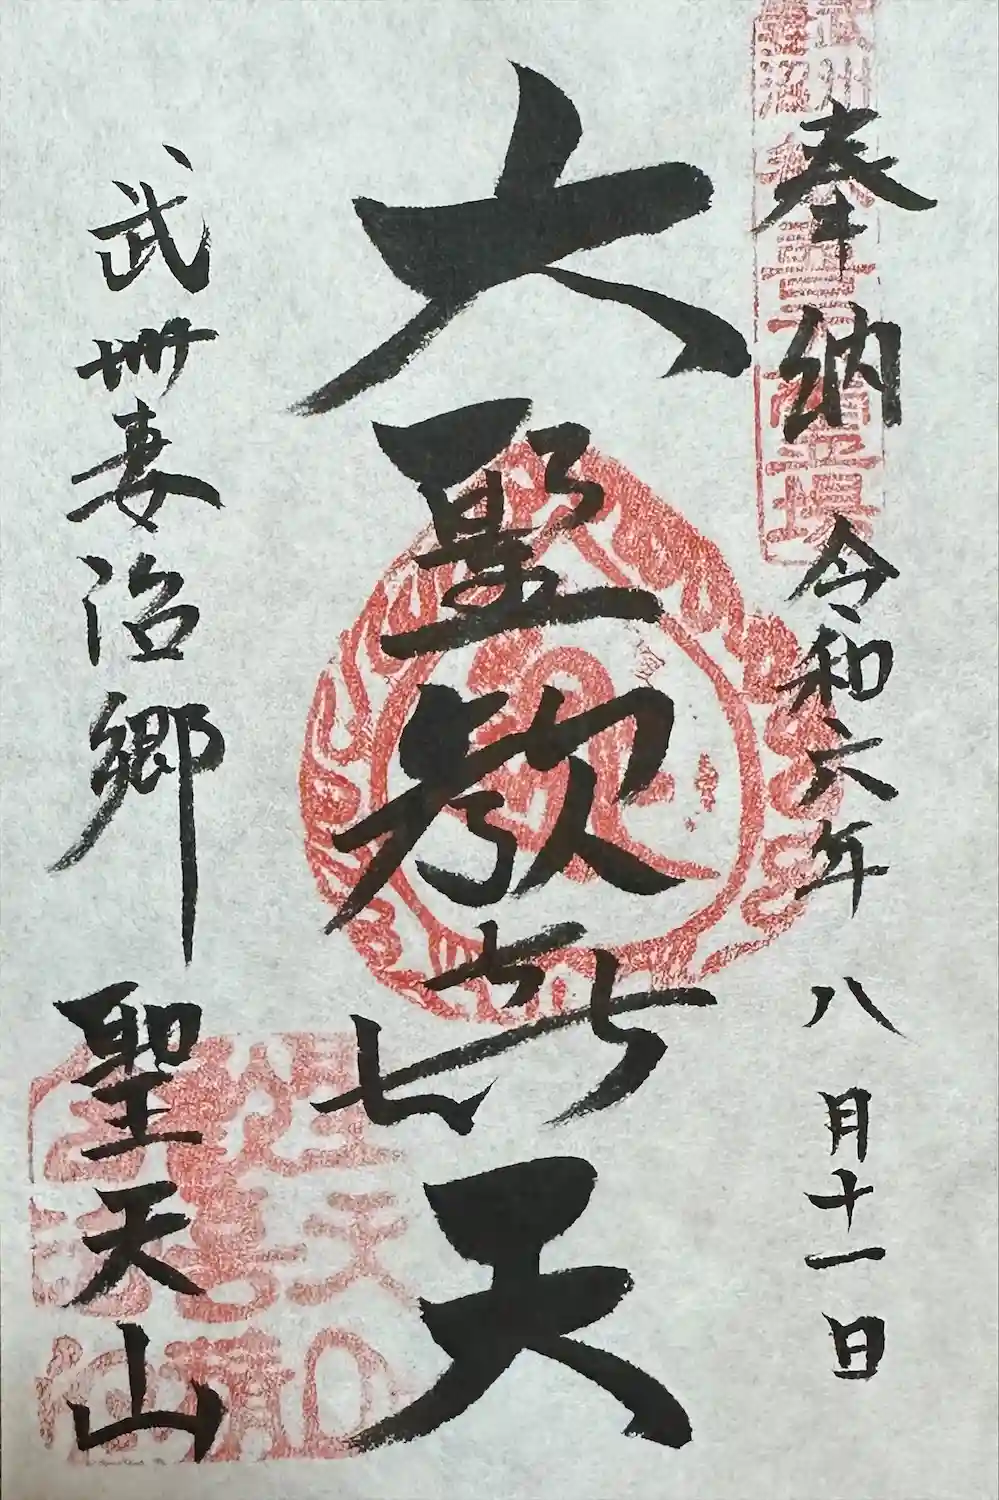 奉納 令和六年八月十一日
大聖歓㐂天
武州妻沼郷 聖天山